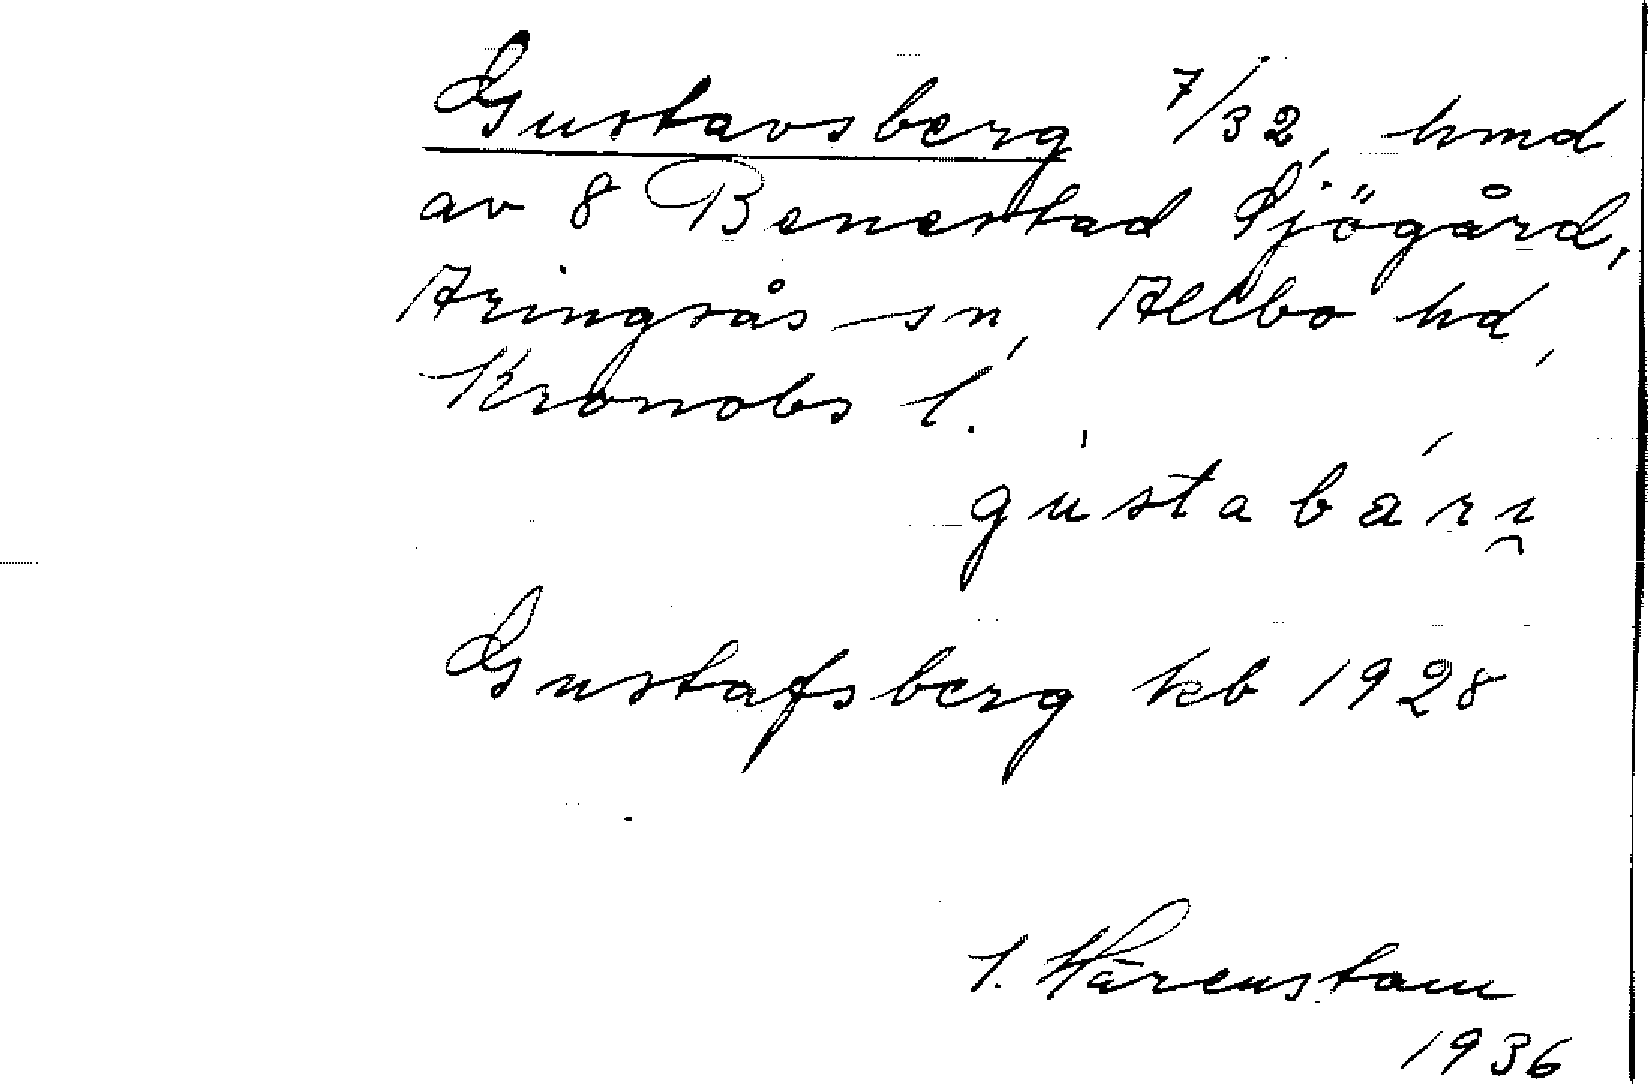 Gustavsberg 7/32, hmd
av 8 Benestad Sjögård,
Aringsås sn, Allbo hd,
Kronobs l.
gústabárɪ̯
Gustafsberg kb 1928
Härenstam
1936